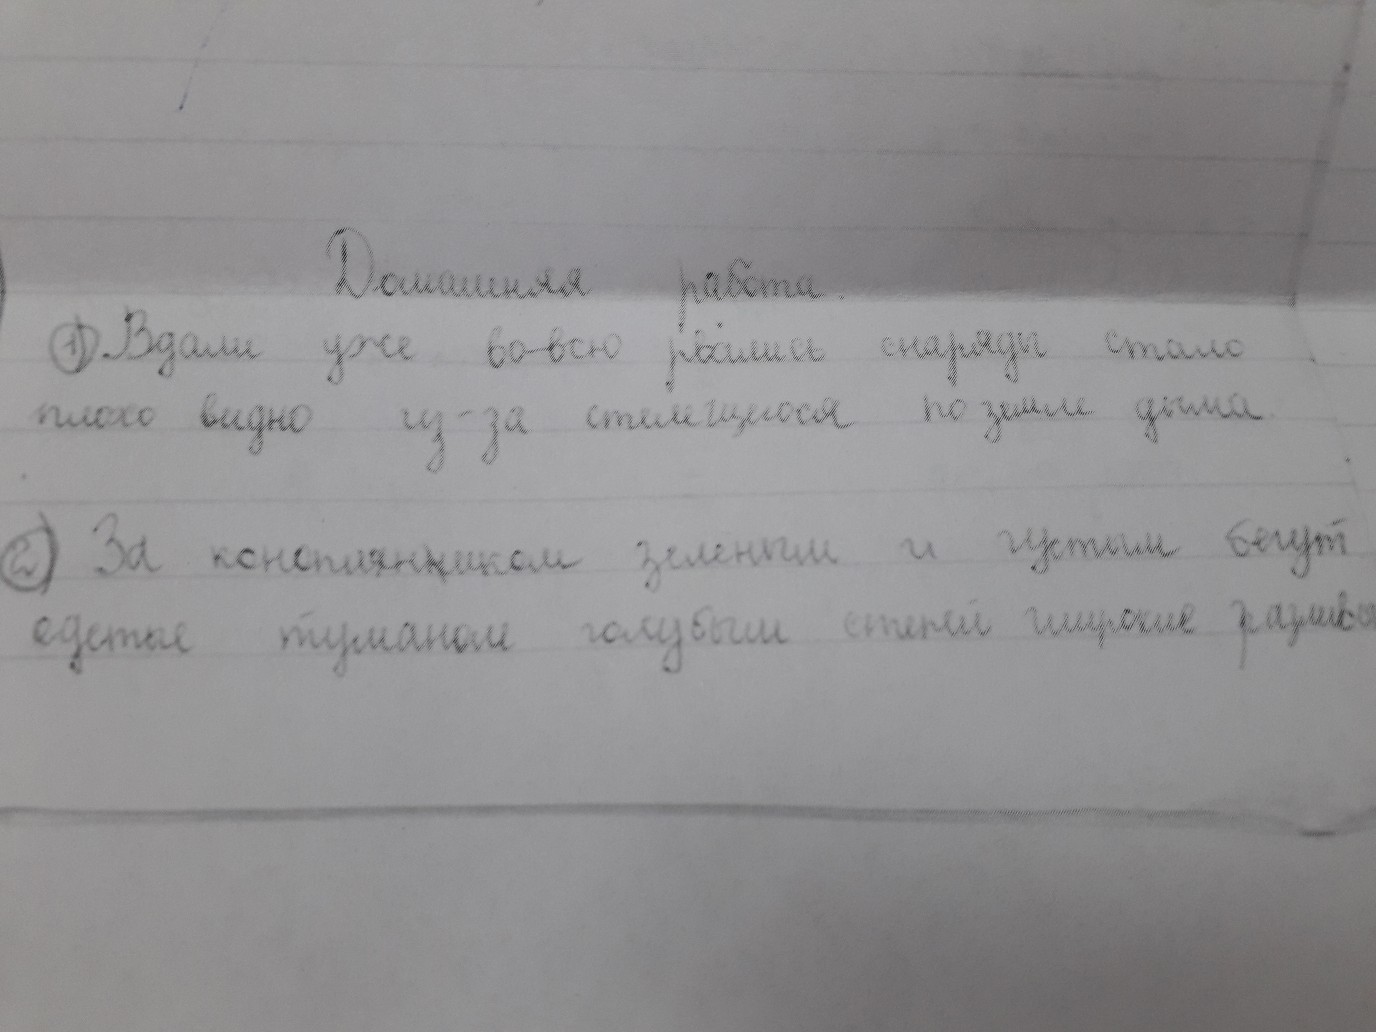 Домашняя работа.
① Вдали уже во-всю рвались снаряды стало
плохо видно из-за стелещегося по земле дыма.
② За коноплянником зеленым и густым бегут
одетые туманом голубым степей широкие